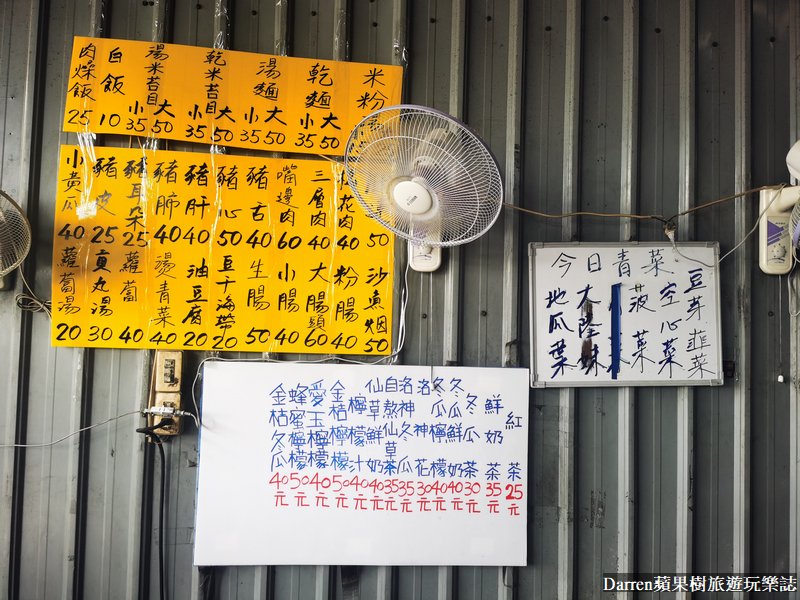 肉燥飯 25
白飯 10
湯米苔目 小35 大50
乾米苔目 小35 大50
湯麵 小35 大50
乾麵 小35 大50
米粉
小黃瓜 40
豬皮 25
豬耳朵 25
豬肺 40
豬肝 40
豬心 50
豬舌 40
嘴邊肉 60
三層肉 40
花肉 40
50
蘿蔔湯 20
貢丸湯 30
蘿蔔 40
燙青菜 40
油豆腐 20
豆干海帶 20
生腸 50
小腸 40
大腸頭 60
粉腸 40
沙魚烟 50
今日青菜
地瓜葉
大陸妹
菠菜
空心菜
豆芽韭菜
金桔冬瓜 40元
蜂蜜檸檬 50元
愛玉檸檬 40元
金桔檸檬 50元
檸檬汁 40元
仙草鮮奶 40元
自熬仙草茶 35元
洛神冬瓜 35元
洛神花 30元
冬瓜檸檬 40元
冬瓜鮮奶 40元
冬瓜茶 30元
鮮奶茶 35元
紅茶 25元
Darren蘋果樹旅遊玩樂誌